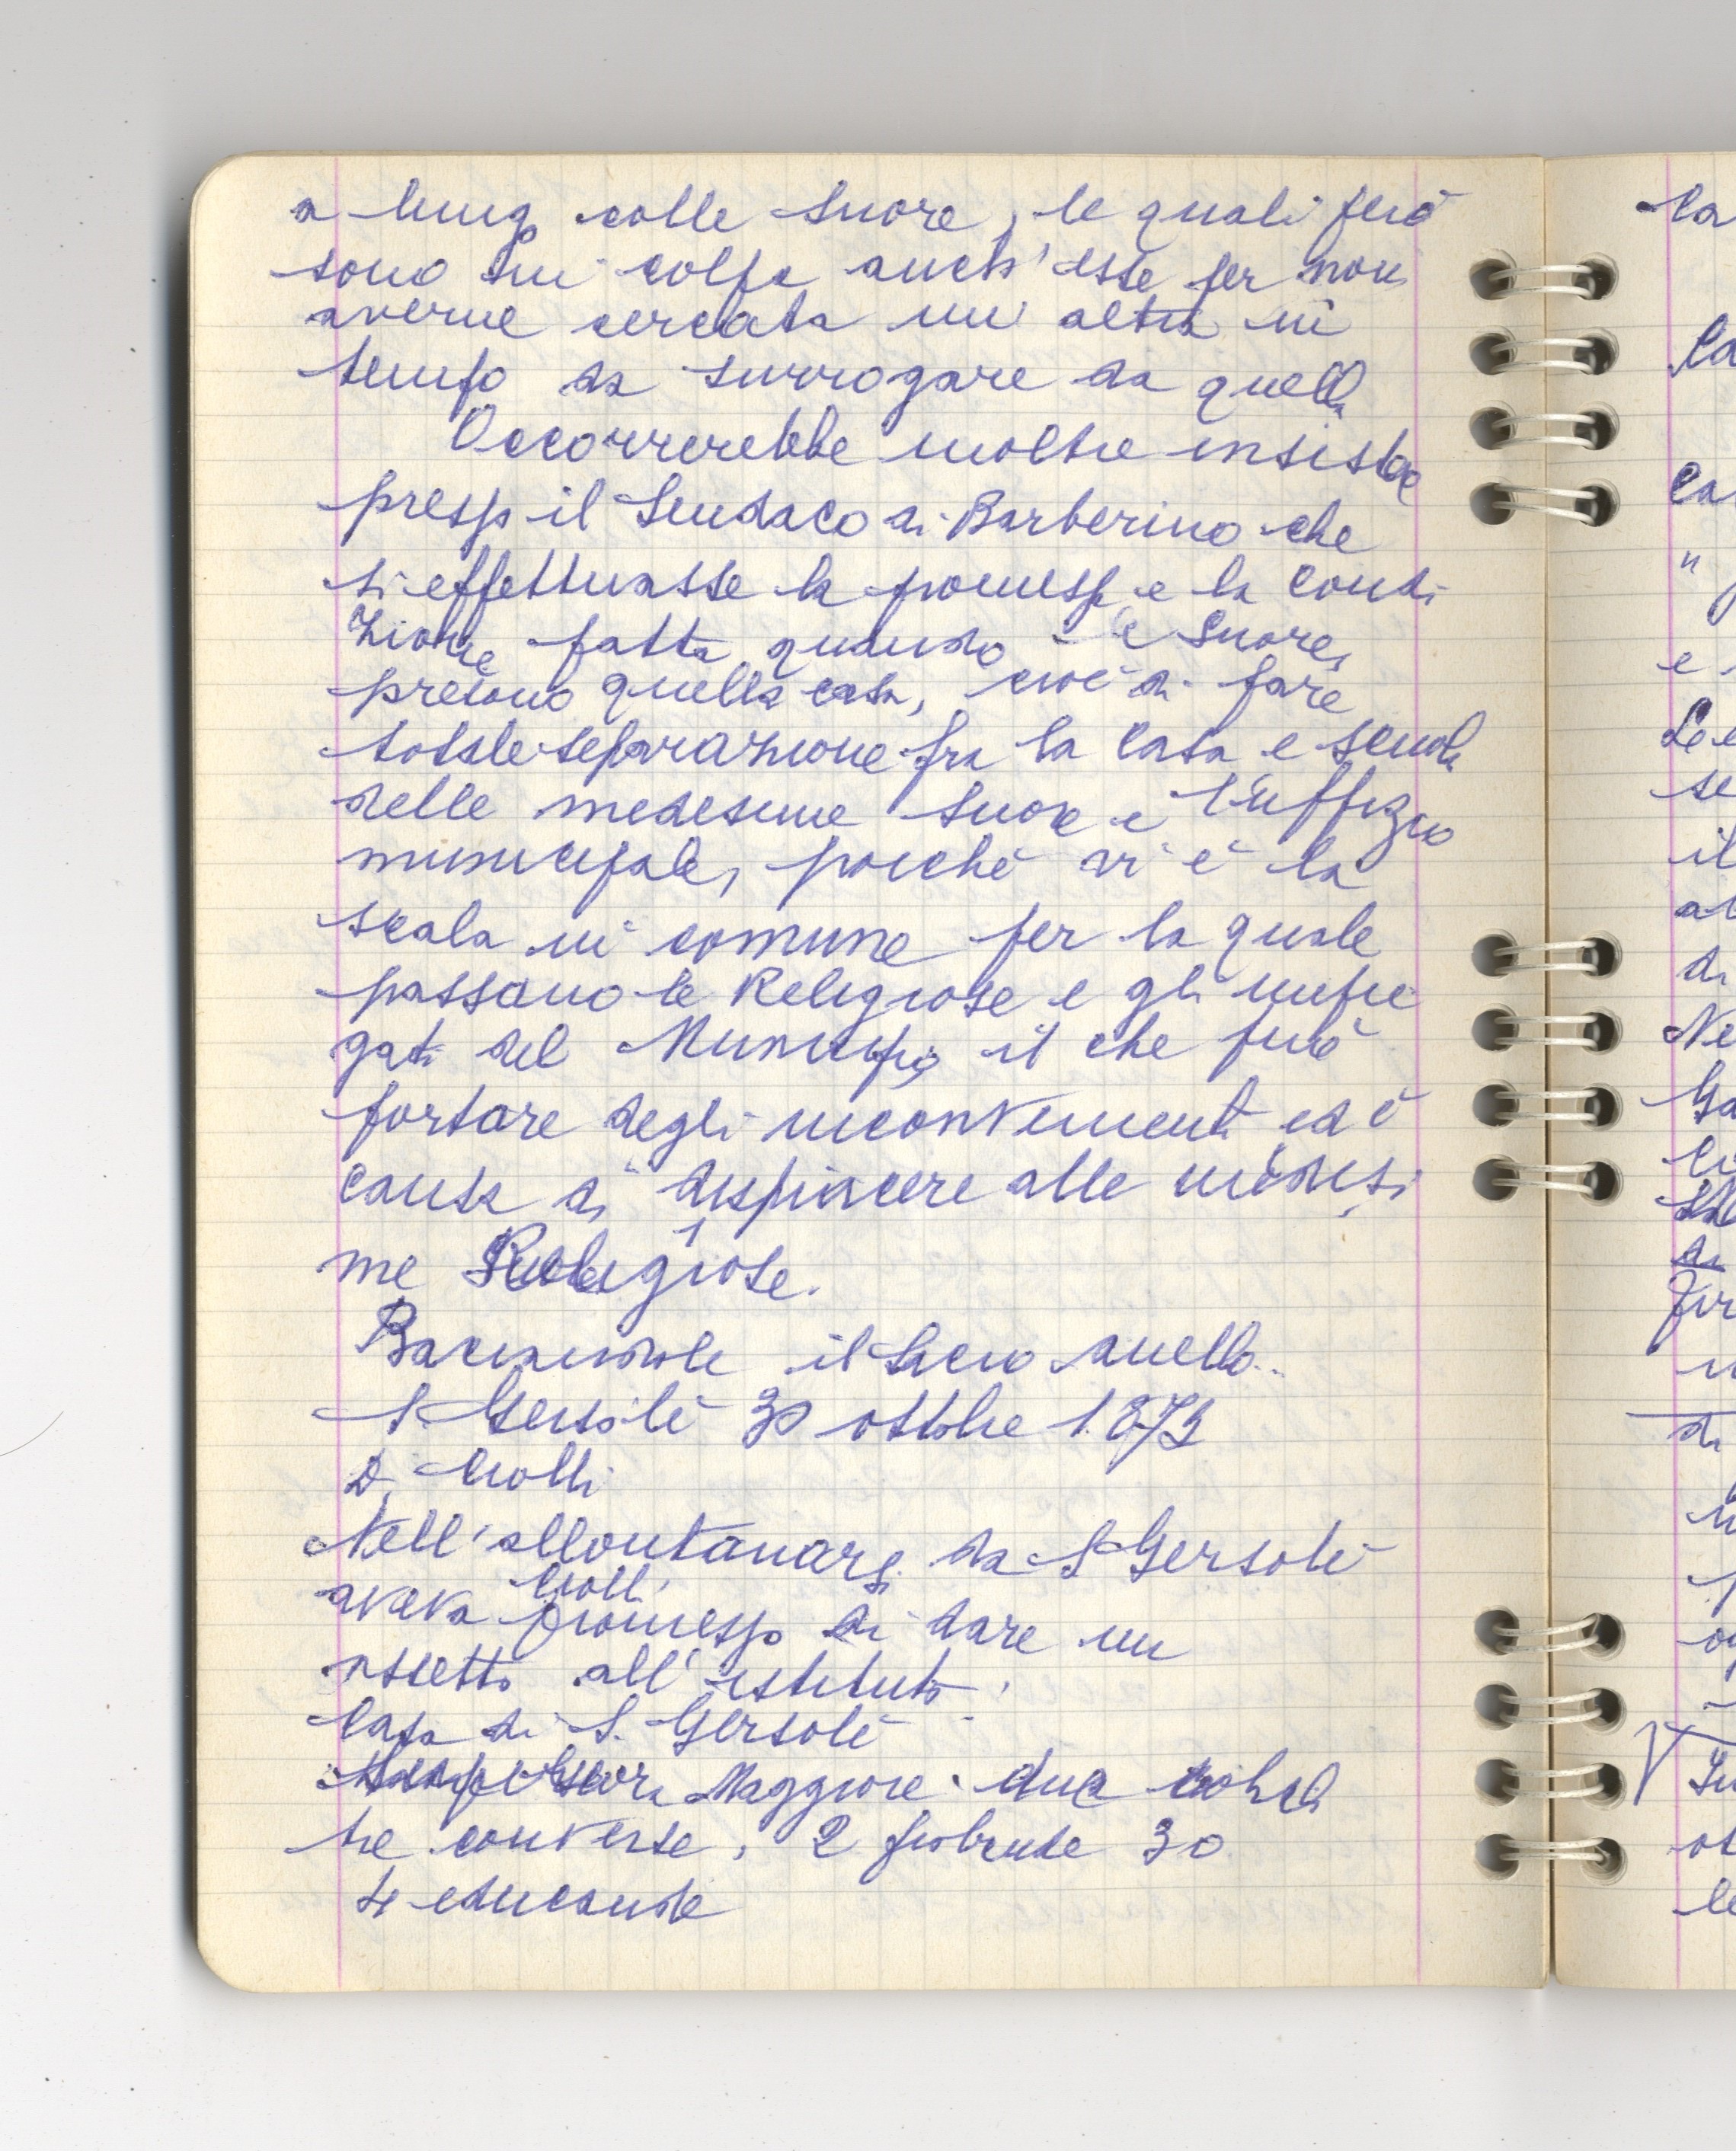 a lungo colle Suore, le quali però
sono in colpa anch'esse per non
averne cercata un altra in
tempo da surrogare da quella
Occorrerebbe inoltre insistere
presso il Sindaco di Barberino che
si effettuasse la promessa e la condi
zione fatta quando le Suore,
presono quella casa, cioè di fare
totale separazione fra la casa e scuola
delle medesime Suore e l'uffizio
municipale, poichè vi è la
scala in comune per la quale
passano le Religiose e gli impie
gati del Municipio, il che può
portare degli inconvenienti ed è
causa di dispiacere alle medesi
me Religiose.
Baciandole il Sacro anello..
S Gersolè 30 ottobre 1873
D. Crolli
Nell'allontanarsi da S Gersolè
Crolli
aveva promesso di dare un
assetto all'istituto
Casa di S. Gersolè
Maggiore due
tre converse, 2 probande 30
4 educande
la
Ca
Ca
"
e
Le
se
il
al
di
Ne
di
di
le